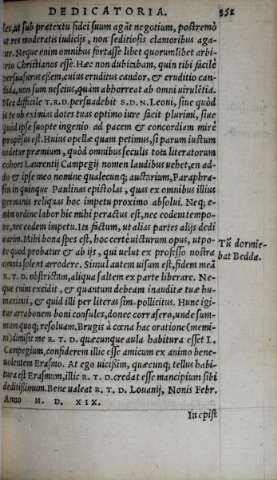 DEDICATORIA. 351
ut sub prætextu fidei suum agāt negotium, postremò
ut res moderatis iudicijs, non seditiosis clamoribus aga-
tur. Neque enim omnibus fortasse libet quorumlibet arbi
trio Christianos esse. Hæc non dubitabam, quin tibi facilè
persuasurus essem, cuius eruditus candor, & eruditio can-
dida, non sum nescius, quàm abhorreat ab omni uirulētia.
Nec difficile T.R.D. persuadebit S.D.N. Leoni, siue quòd
is te ob eximias dotes tuas optimo iure facit plurimi, siue
quòd ipse suopte ingenio ad pacem & concordiam mirè
propensus est. Huius opellæ quam petimus, si parum iustum
uidetur præmium, quòd omnibus seculis tota literatorum
cohors Laurentij Campegij nomen laudibus uehet, en ad-
do & ipse meo nomine qualecunque auctarium, Paraphra-
sin in quinque Paulinas epistolas, quas ex omnibus illius
germanis reliquas hoc impetu proximo absolui. Neque e-
nim ordine labor hic mihi peractus est, nec eodem tempo-
re, nec eodem impetu. In fictum, ut alias partes alijs dedi
carim. Mihi bona spes est, hoc certè uicturum opus, utpo-
te quod probatur & ab ijs, qui uelut ex professo nostra
omnia solent arrodere. Simul autem uisum est, fidem meā
R.T.D. obstrictam, aliqua saltem ex parte liberare. Ne-
que enim excidit, & quantum debeam inauditæ tuæ hu-
manitati, & quid illi per literas sim pollicitus. Hunc igi-
tur arrabonem boni consules, donec corrasero, unde sum-
mam quoque resoluam. Brugis à cœna hac oratione (memi-
ni) dimisit me R.T.D. quæcunque aula habitura esset L.
Campegium, considerem illic esse amicum ex animo bene-
uolentem Erasmo. At ego uicissim, quæcunque tellus habi-
tura est Erasmum, illic R.T.D. credat esse mancipium sibi
deditissimum. Bene ualeat R.T.D. Louanij, Nonis Febr.
Anno M. D. XIX.
Tū dormie-
bat Bedda.
In epist